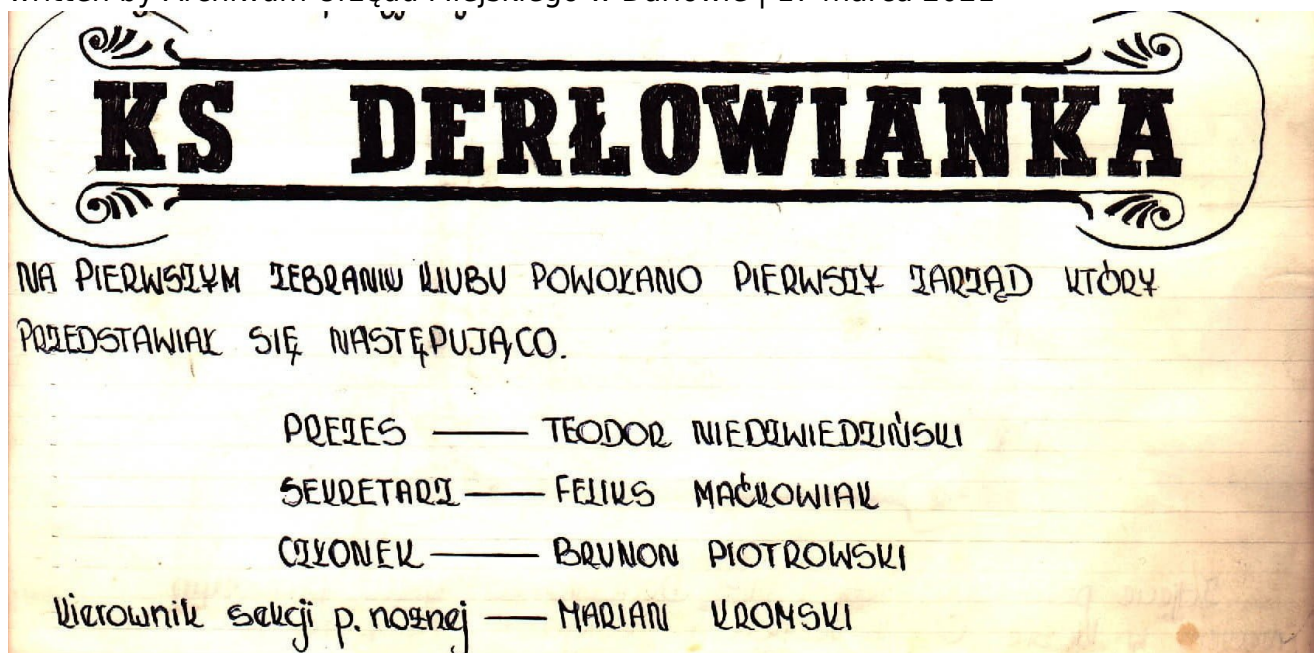 KS DERŁOWIANKA
NA PIERWSZYM ZEBRANIU KLUBU POWOŁANO PIERWSZY ZARZĄD KTÓRY
PRZEDSTAWIAŁ SIĘ NASTĘPUJĄCO.
PREZES — TEODOR NIEDZWIEDZIŃSKI
SEKRETARZ — FELIKS MAĆKOWIAK
CZŁONEK — BRUNON PIOTROWSKI
Kierownik sekcji p. nożnej — MARIAN KROMSKI